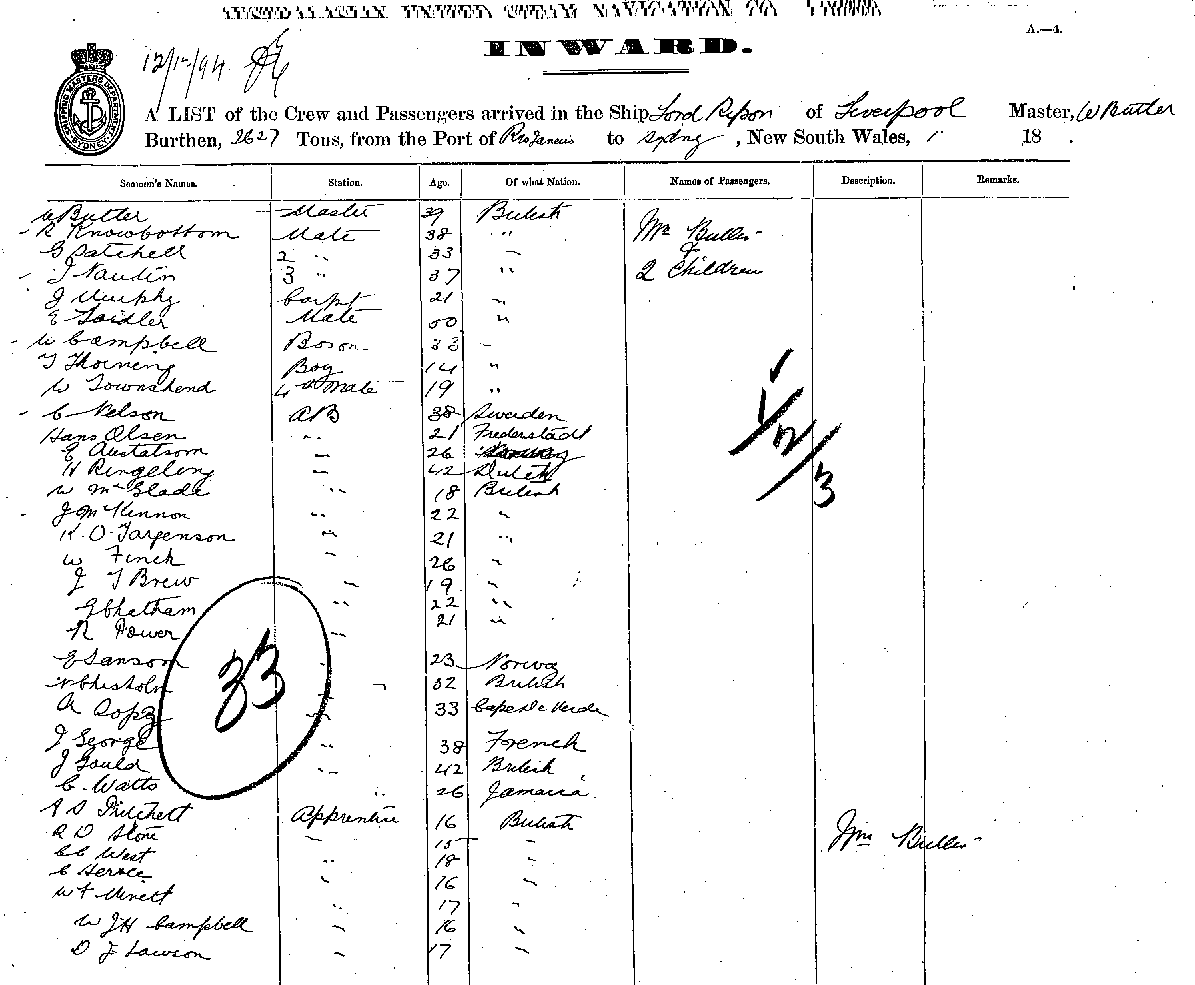 AUSTRALASIAN UNITED STEAM NAVIGATION CO
A.—4.
INWARD.
12/12/94
SHIPPING MASTERS DEPARTMENT SYDNEY
A LIST of the Crew and Passengers arrived in the Ship Lord Ripon of Liverpool Master, W Butler
Burthen, 2627 Tons, from the Port of Rio Janeiro to Sydney, New South Wales, 1 18 .
Seamen's Names. Station. Age. Of what Nation. Names of Passengers. Description. Remarks.
W Butler Master 39 British
R Knowbottom Mate 38 " Mrs Butler
G Patchell 2 " 33 " &
J Naudin 3 " 37 " 2 Children
J Murphy Carpt 21 "
E Saidler Mate 50 "
W Campbell Boson 33 "
T Thorning Boy 14 "
W Townshend 4th Mate 19 "
C Nelson AB 38 Sweden
Hans Olsen " 21 Frederstadt
E Austatsom " 26 Norway
H Ringeling " 42 Dutch
W McGlade " 18 British
J McKennon " 22 "
K. O. Targenson " 21 "
W Finch " 26 "
J T Brew " 19 "
G Chatham " 22 "
R Power " 21 "
E Sanson " 23 Norway
Chisholm " 32 British
A Lopz " 33 Cape de Verde
J George " 38 French
J Gould " 42 British
C. Watts " 26 Jamaica
S Pritchett Apprentice 16 British
R D Stone " 15 "
CC West " 18 "
C Service " 16 "
W F Minett " 17 "
W J H Campbell " 16 "
D J Lawson " 17 "
1/12/3
33
Wm Butler